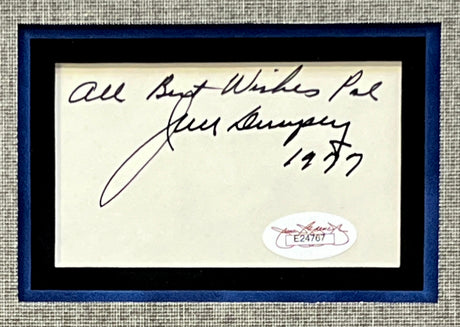 All Best Wishes Pal
Jack Dempsey
1977
James Spence
E24767